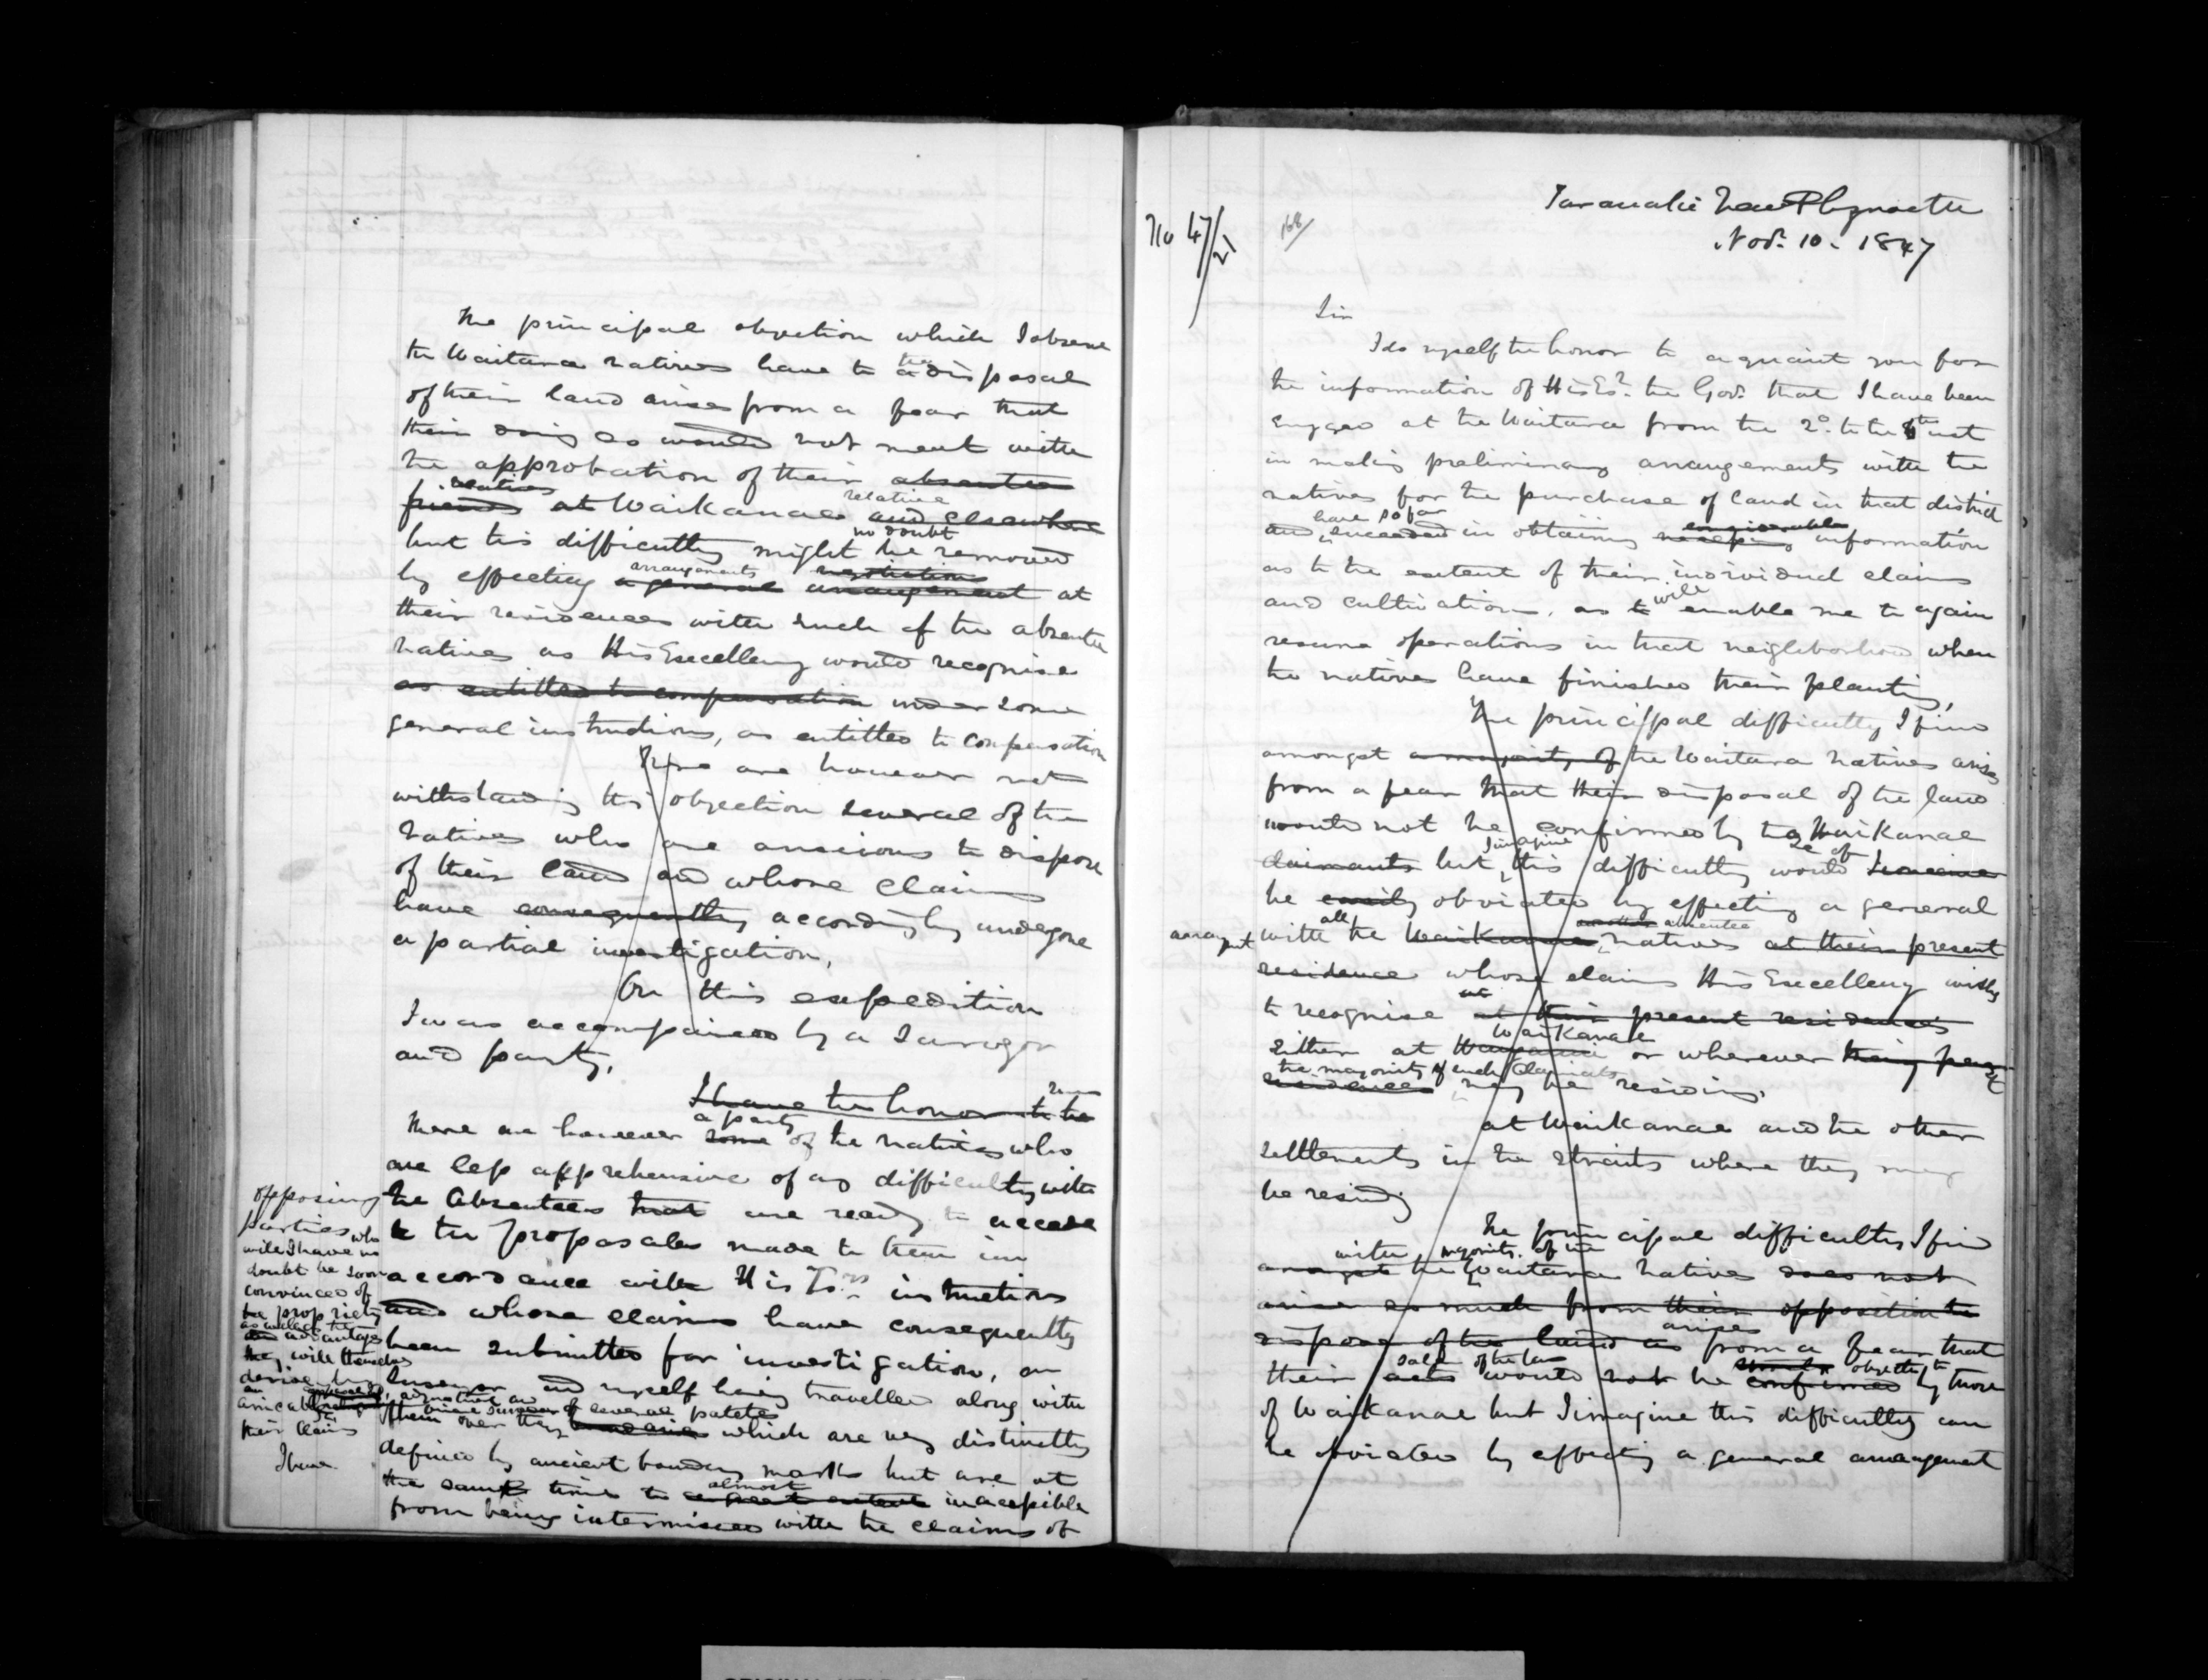 The principal objection which I observe
the Waitara natives have to the disposal
of their land arises from a fear that
their doing so would not meet with
the approbation of their absentee
relatives
friends at Waikanae relative and elsewhere
but this difficulty might no doubt be removed
by effecting arrangements negotiations a general arrangement at
their residences with such of the absentee
natives as His Excellency would recognise
as entitled to compensation under some
general instructions, as entitled to compensation
There are however not
withstanding this objection several of the
natives who are anxious to dispose
of their land and whose claims
have consequently accordingly undergone
a partial investigation,
On this expedition
I was accompanied by a Surveyor
and party,
I have the honor to be
There are however a party some of the natives who
are less apprehensive of any difficulty with
the Absentees that are ready to accede
to the proposals made to them in
accordance with His Ex's instructions
and whose claims have consequently
been submitted for investigation, a
Surveyor and myself having travelled along with
them over the several patches which are very distinctly
defined by ancient boundary marks but are at
the same time to a great extent almost inaccessible
from being intermixed with the claims of
opposing
parties who
will I have no
doubt be soon
convinced of
the propriety
as well as the
and advantages
they will themselves
derive by
an
amicable
their claims
I have
No 47/21
168/
Taranaki New Plymouth
Nov. 10. 1847
Sir
I do myself the honor to aquaint you for
the information of His Ex. the Gov. that I have been
engaged at the Waitara from the 2d. to the inst
in making preliminary arrangements with the
natives for the purchase of land in that district
have so far
and succeeded in obtaining considerable information
as to the extent of their individual claims
and cultivations, as to will enable me to again
resume operations in that neighborhood when
the natives have finished their planting,
The principal difficulty I find
amongst a majority of the Waitara natives arises
from a fear that their disposal of the land
would not be confirmed by the Waikanae
claimants but I imagine this difficulty would I conceive
be easily obviated by effecting a general
arrangt with all the Waikanae absentee natives at their present
residence whose claims His Excellency wishes
to recognise at their present residences
either at Waikanae or wherever their present
the majority of such Claimants
residences may be residing.
at Waikanae and the other
settlements in the straits where they may
be residing
The principal difficulty I find
with majority of the
amongst the Waitara natives does not
arise so much from their opposition to
dispose of the land as arises from a fear that
their acts sale of the land would not be confirmed objected to by those
of Waikanae but I imagine this difficulty can
be obviated by effecting a general arrangement